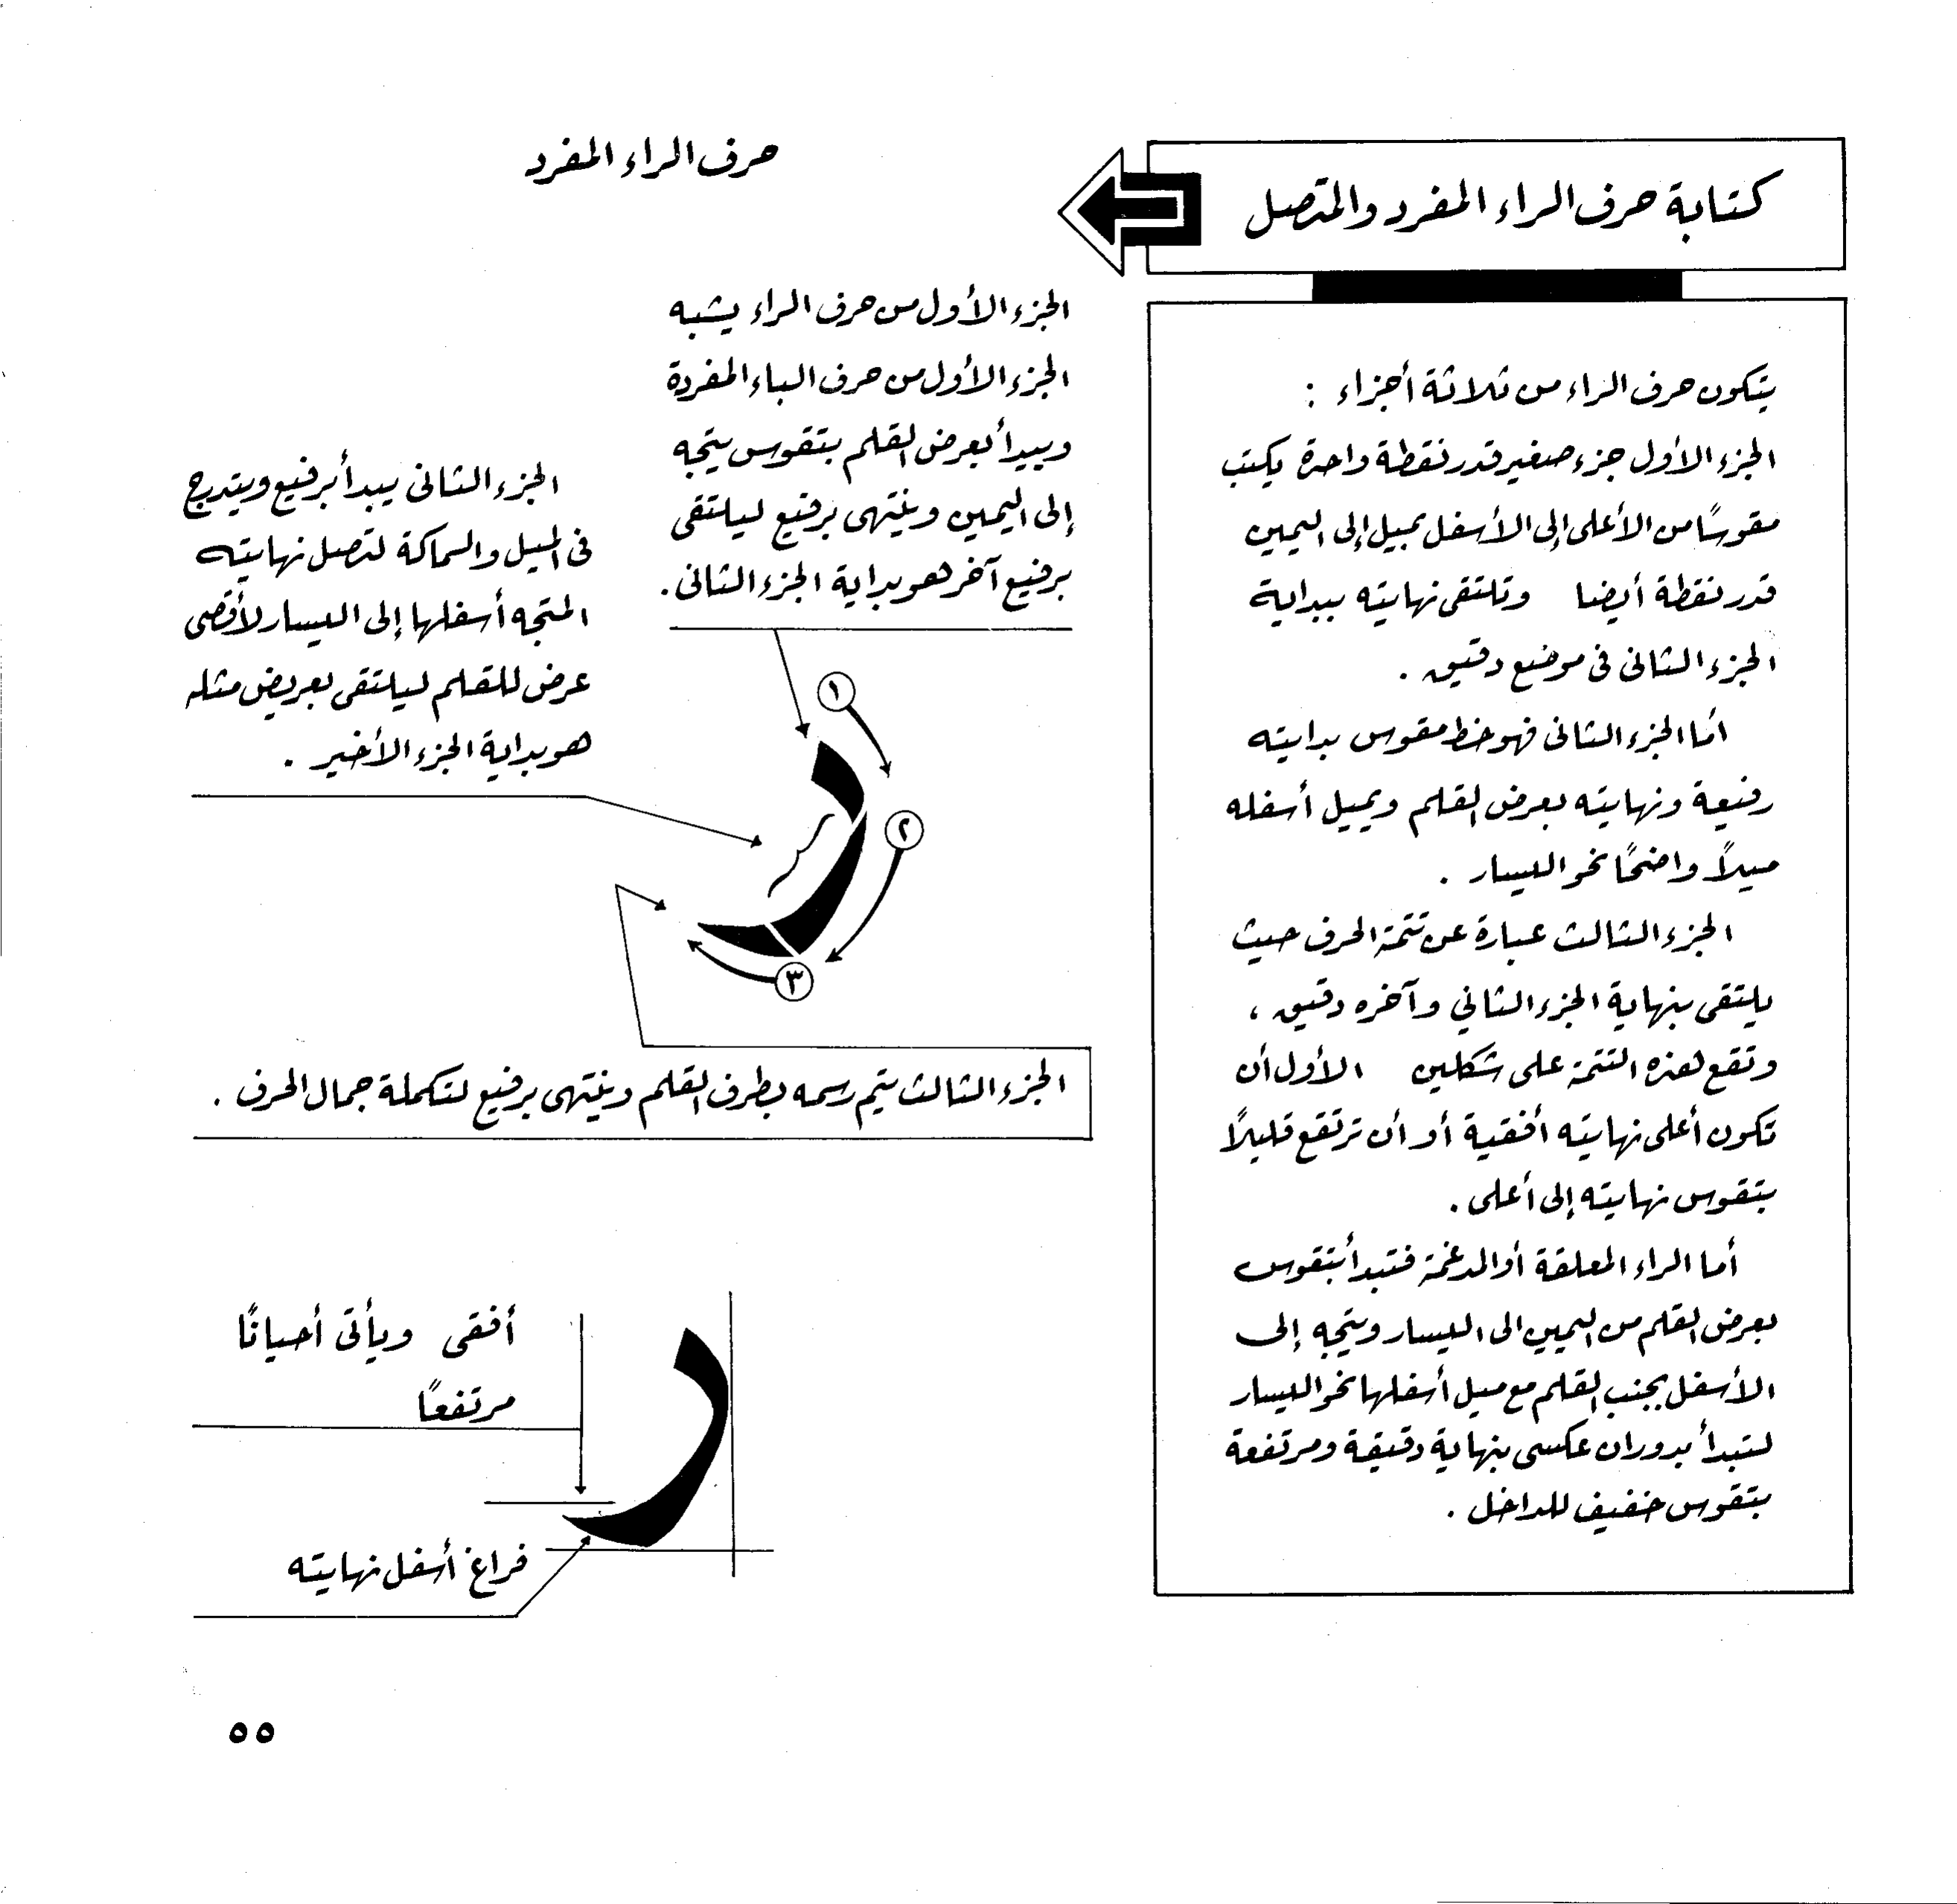 كتابة حرف الراء المفرد والمتصل
يتكون حرف الراء من ثلاثة أجزاء :
الجزء الأول جزء صغير قدر نقطة واحدة يكتب
مقوسًا من الأعلى إلى الأسفل بميل إلى اليمين
قدر نقطة أيضا وتلتقى نهايته ببداية
الجزء الثانى فى موضع دقيق .
أما الجزء الثانى فهو خط مقوس بدايته
رفيعة ونهايته بعرض القلم ويميل أسفله
ميلاً واضحًا نحو اليسار .
الجزء الثالث عبارة عن تتمة الحرف حيث
يلتقى بنهاية الجزء الثاني وآخره دقيق ،
وتقع هذه التتمة على شكلين الأول أن
تكون أعلى نهايته أفقية أو أن ترتفع قليلاً
بتقوس نهايته إلى أعلى .
أما الراء المعلقة أو المدغمة فتبدأ بتقوس
بعرض القلم من اليمين الى اليسار ويتجه إلى
الأسفل بجنب القلم مع ميل أسفلها نحو اليسار
لتبدأ بدوران عكسى بنهاية دقيقة ومرتفعة
بتقوس خفيف للداخل .
حرف الراء المفرد
الجزء الأول من حرف الراء يشبه
الجزء الأول من حرف الباء المفردة
ويبدأ بعرض القلم بتقوس يتجه
إلى اليمين وينتهى برفيع ليلتقى
برفيع آخر هو بداية الجزء الثانى .
الجزء الثانى يبدأ برفيع ويتدرج
فى الميل والسماكة لتصل نهايته
المتجه أسفلها إلى اليسار لأقصى
عرض للقلم ليلتقى بعريض مثله
هو بداية الجزء الأخير .
١
٢
٣
الجزء الثالث يتم رسمه بطرف القلم وينتهى برفيع لتكملة جمال الحرف .
أفقى ويأتى أحيانًا
مرتفعًا
ر
فراغ أسفل نهايته
٥٥